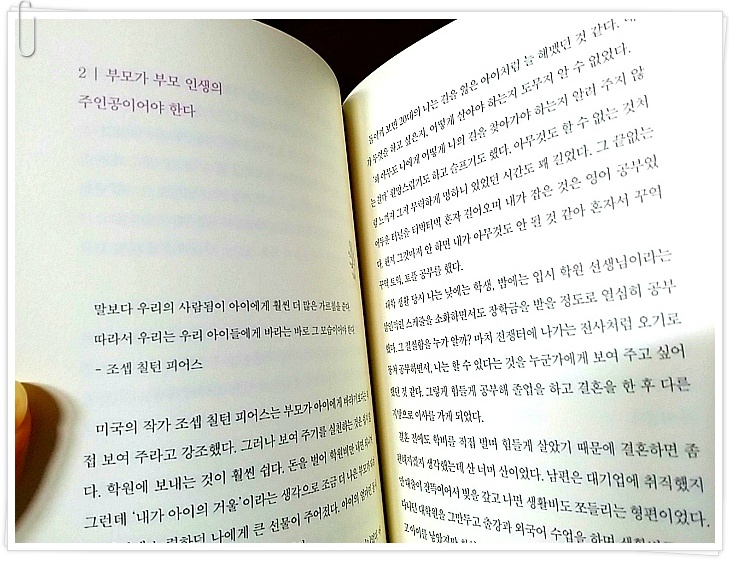 2 | 부모가 부모 인생의
주인공이어야 한다
말보다 우리의 사람됨이 아이에게 훨씬 더 많은 가르침을 준다.
따라서 우리는 우리 아이들에게 바라는 바로 그 모습이어야 한다.
- 조셉 칠턴 피어스
미국의 작가 조셉 칠턴 피어스는 부모가 아이에게
접 보여 주라고 강조했다. 그러나 보여 주기를 실천하는 것은
다. 학원에 보내는 것이 훨씬 쉽다. 돈을 벌어 학원비만 내면
그런데 '내가 아이의 거울'이라는 생각으로 조금 더 나은 부모가
나에게 큰 선물이 주어졌다. 아이의
돌이켜 보면 20대의 나는 길을 잃은 아이처럼 늘 헤맸던 것 같다. 내
가 무엇을 하고 싶은지, 어떻게 살아야 하는지 도무지 알 수 없었다.
아무도 나에게 어떻게 나의 길을 찾아가야 하는지 알려 주지 않
는 걸까' 원망스럽기도 하고 슬프기도 했다. 아무것도 할 수 없는 것처
럼 느껴져 그저 무력하게 멍하니 있었던 시간도 꽤 길었다. 그 끝없는
어두운 터널을 터벅터벅 혼자 걸어오며 내가 잡은 것은 영어 공부였
다. 그것마저 안 하면 내가 아무것도 안 된 것 같아 혼자서 꾸역
꾸역 토익, 토플 공부를 했다.
대학 생활 당시 나는 낮에는 학생, 밤에는 입시 학원 선생님이라는
스케줄을 소화하면서도 장학금을 받을 정도로 열심히 공부
했다. 그 절실함을 누가 알까? 마치 전쟁터에 나가는 전사처럼 오기로
공부하면서, 나는 할 수 있다는 것을 누군가에게 보여 주고 싶어
했던 것 같다. 그렇게 힘들게 공부해 졸업을 하고 결혼을 한 후 다른
지방으로 이사를 가게 되었다.
결혼 전에도 학비를 직접 벌며 힘들게 살았기 때문에 결혼하면 좀
편해지겠지 생각했는데 산 너머 산이었다. 남편은 대기업에 취직했지
만 대출이 잔뜩이어서 빚을 갚고 나면 생활비도 쪼들리는 형편이었다.
다니던 대학원을 그만두고 출강과 외국어 수업을 하며